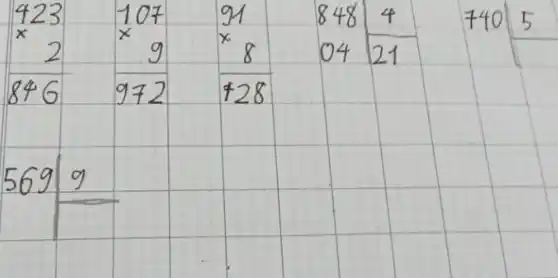 423 107 91 848 4 740 5
× × ×
2 9 8 04 21
846 972 728
569 9